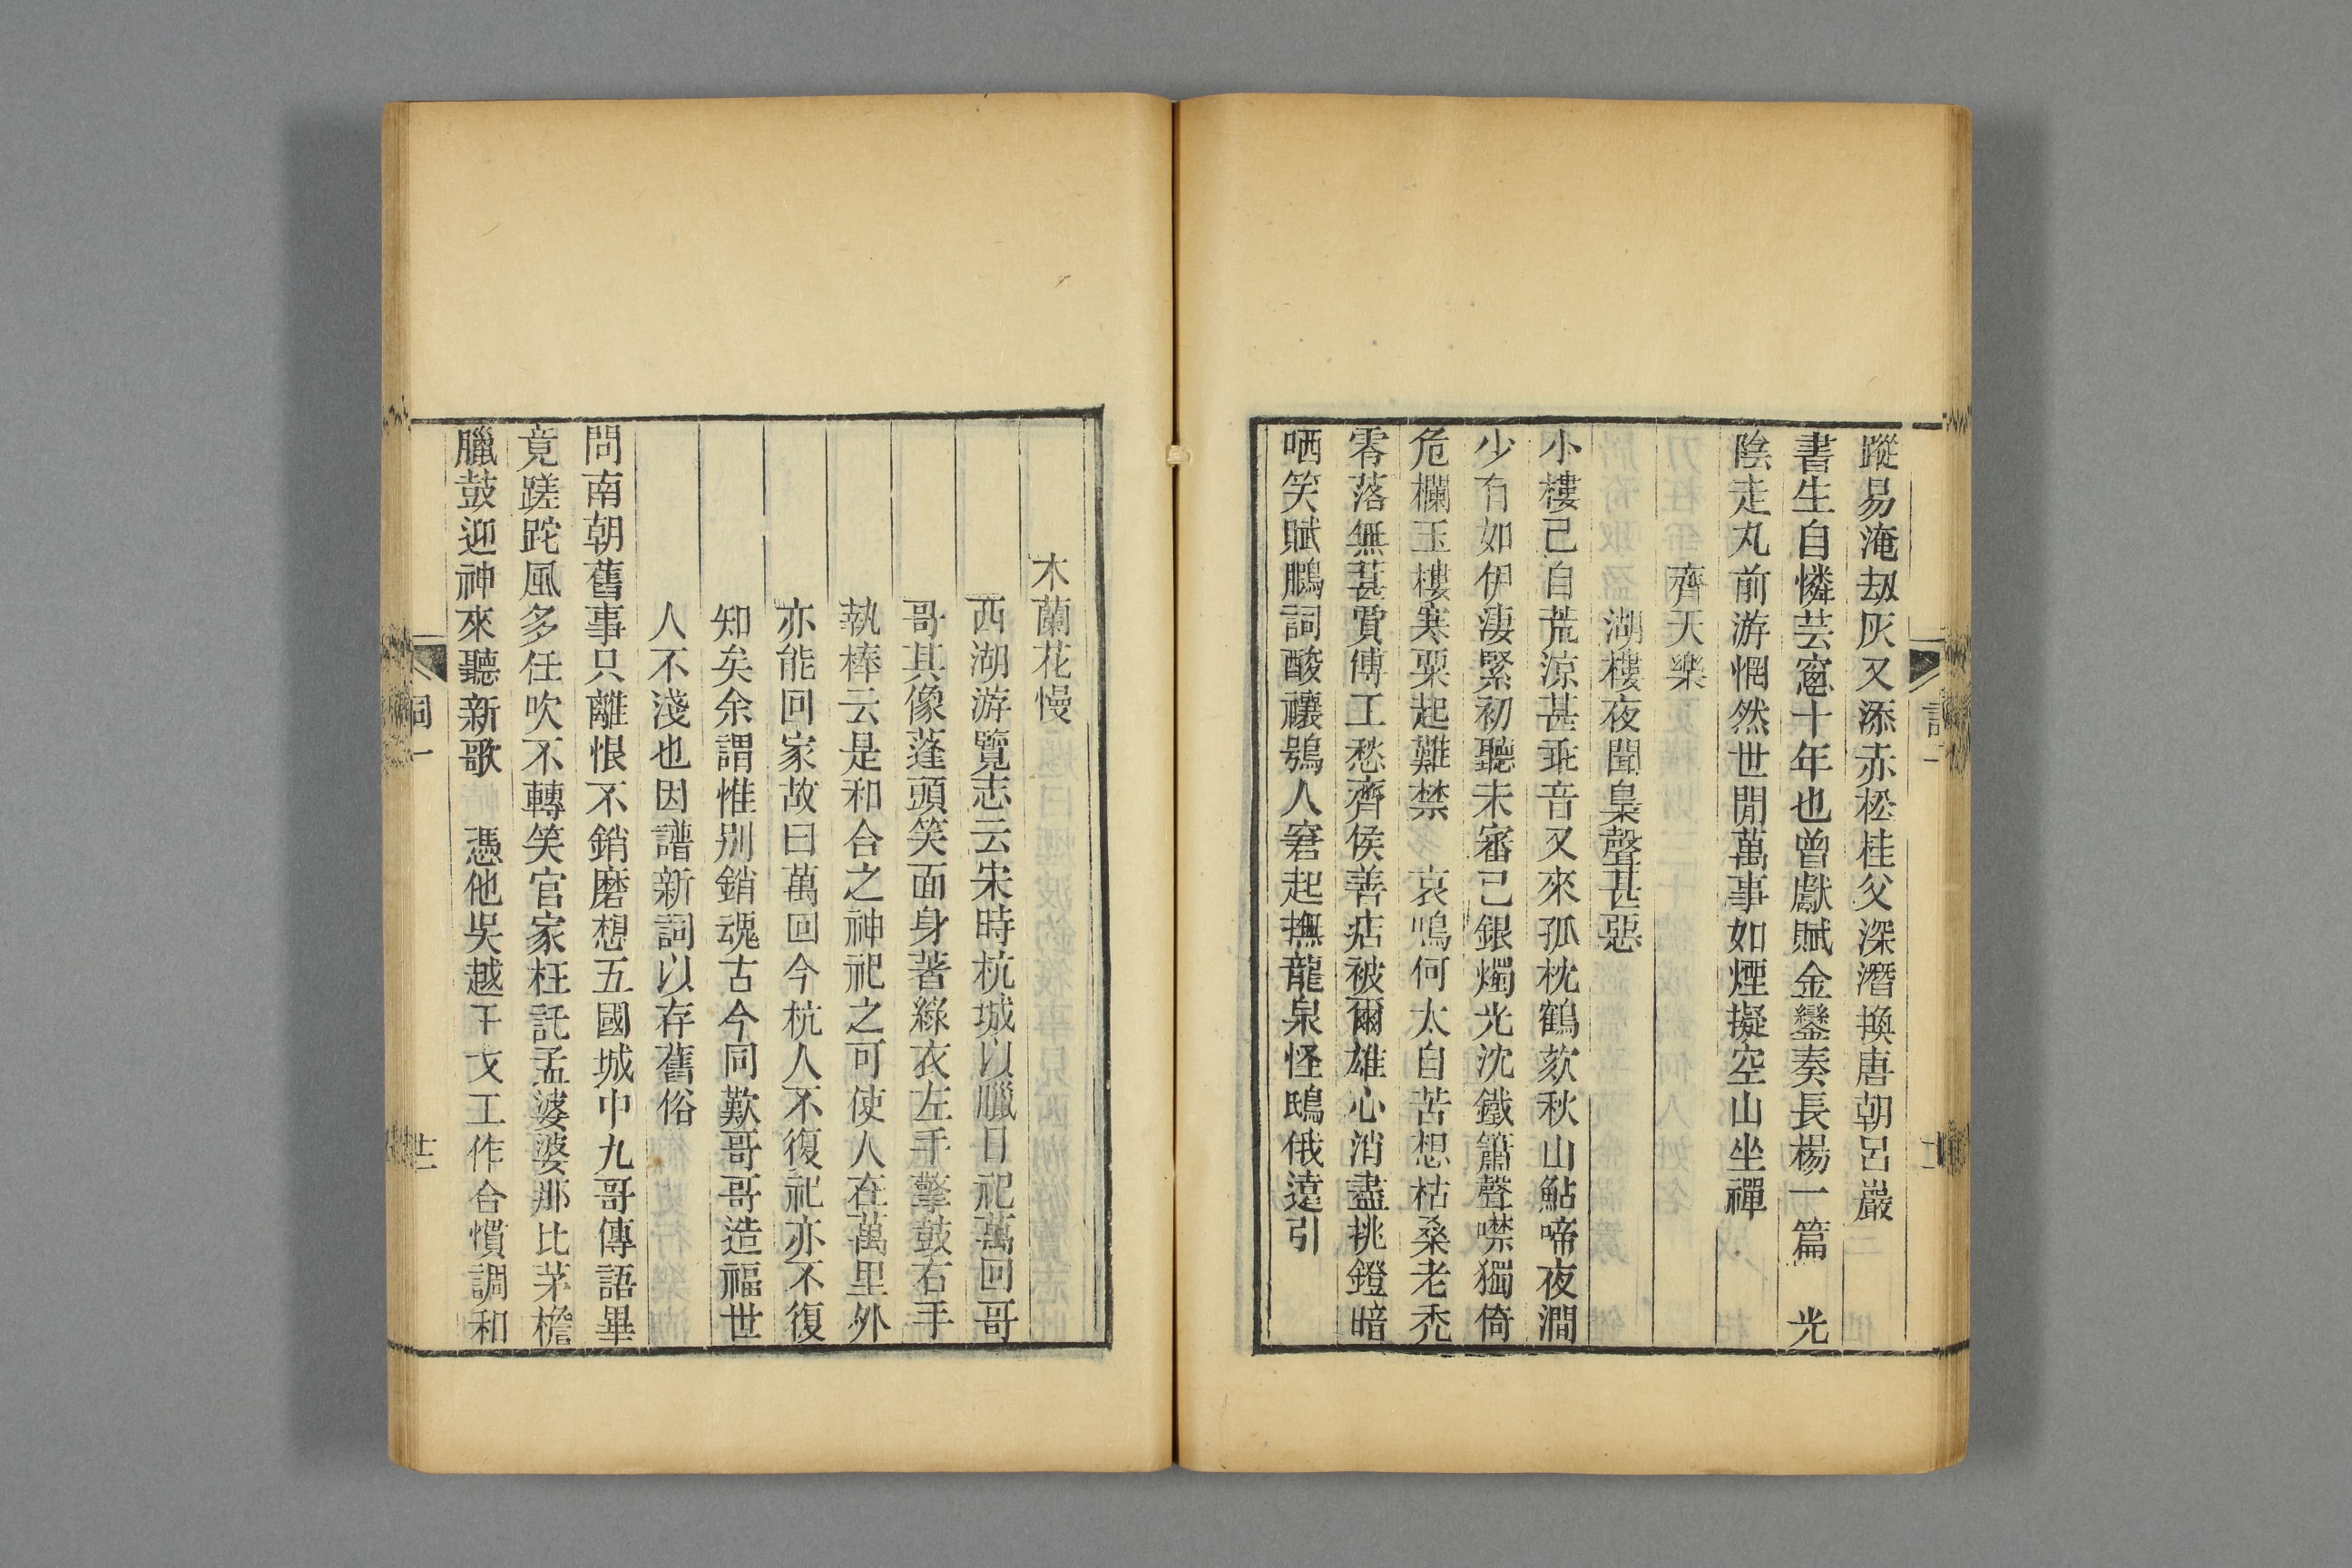 蹤易淹劫灰又添赤松桂父深潛換唐朝呂巖
書生自憐芸窻十年也曾獻賦金鑾奏長楊一篇　光
陰走丸前游惘然世閒萬事如煙擬空山坐禪
齊天樂
湖樓夜聞梟聲甚惡
小樓已自荒涼甚乖音又來孤枕鶴欬秋山鮎啼夜澗
少有如伊淒緊初聽未審已銀燭光沈鐵簫聲噤獨倚
危欄玉樓寒粟起難禁　哀鳴何太自苦想枯桑老禿
零落無葚賈傅工愁齊侯善痁被爾雄心消盡挑鐙暗
哂笑賦鵬詞酸禳鴞人窘起撫龍泉怪鴟俄遠引
木蘭花慢
西湖游覽志云宋時杭城以臘日祀萬回哥
哥其像蓬頭笑面身著綠衣左手擎鼓右手
執棒云是和合之神祀之可使人在萬里外
亦能回家故曰萬回今杭人不復祀亦不復
知矣余謂惟別銷魂古今同歎哥哥造福世
人不淺也因譜新詞以存舊俗
問南朝舊事只離恨不銷磨想五國城中九哥傳語畢
竟蹉跎風多任吹不轉笑官家枉託孟婆婆那比茅檐
臘鼓迎神來聽新歌　憑他吳越干戈工作合慣調和
詞一